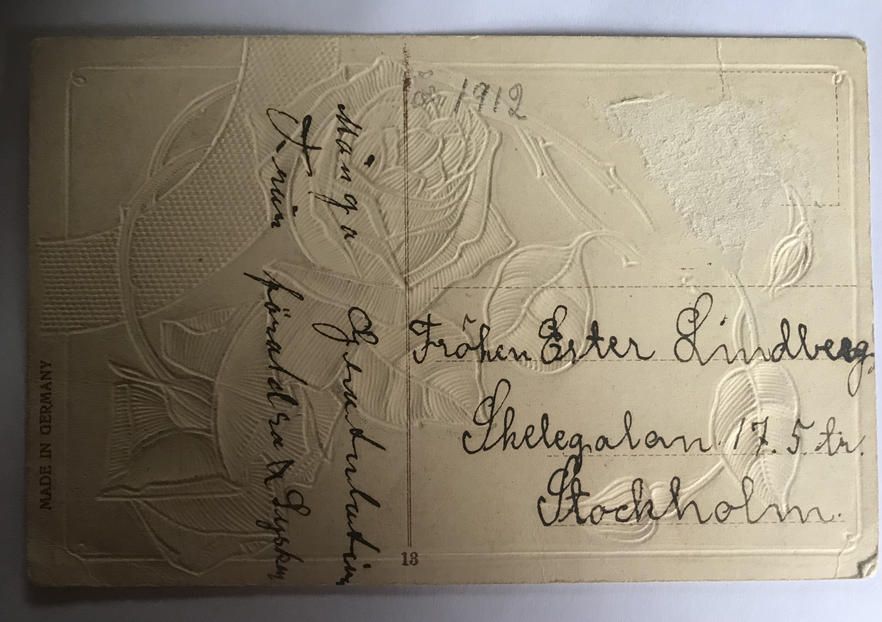 Många Gratulationer
Från föräldra & Syskon
1912
Fröken Ester Lindberg,
Skelegatan 17. 5 tr.
Stockholm.
MADE IN GERMANY
13